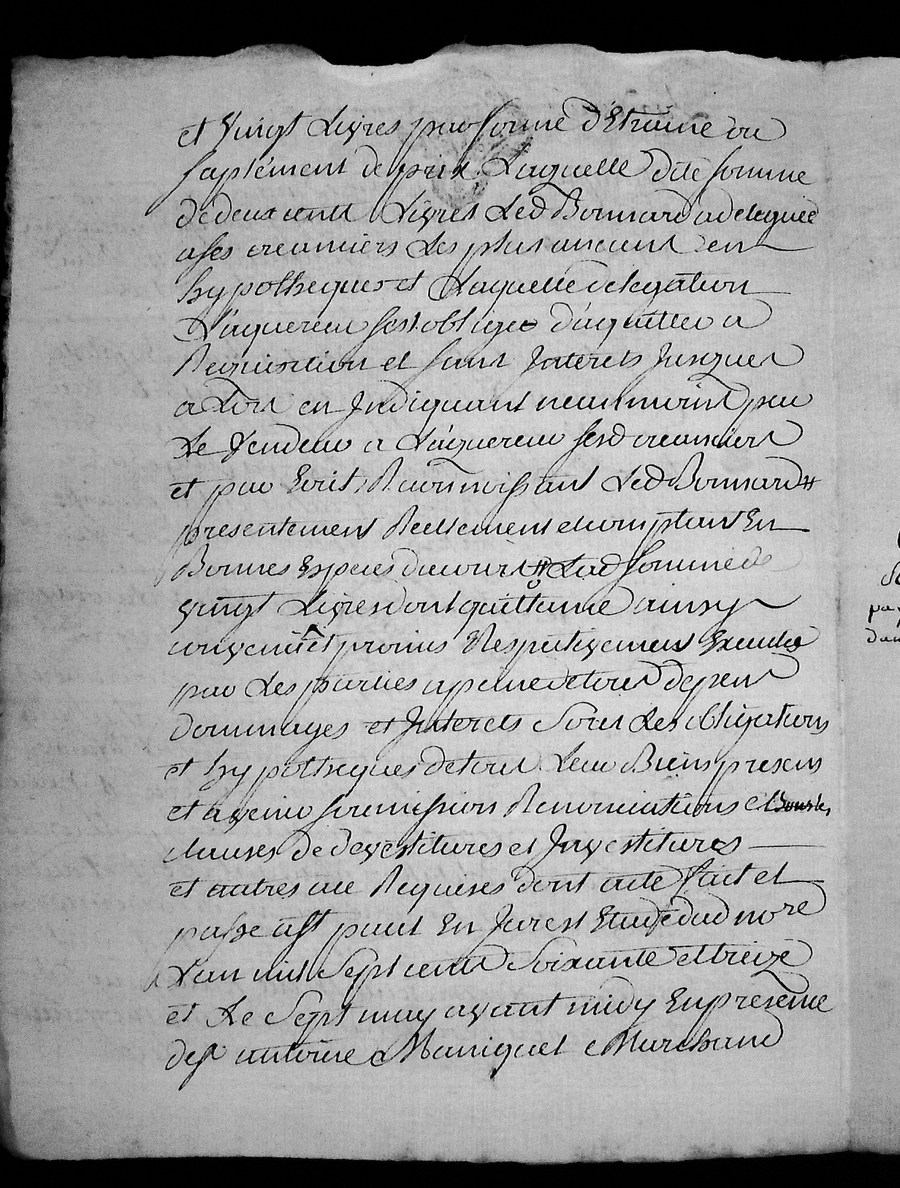 et vingt Livres par forme d'Etraine ou
suplément de prix Laquelle dite somme
de deux cents Livres Led Bonnard a deleguée
a ses creanciers Les plus anciens en
hypotheques et Laquelle delegation
L'aquereur s'est obligé d'aquitter a
Requisition et sans Interets Jusques
a Lors en Indiquant neanmoins par
Le Vendeur a L'aquereur sesd creanciers
et par Ecrit, Reconnoissant Led Bonnard
presentement Reellement et comptant En
Bonnes Especes du cours Lad somme de
vingt Livres dont quittance ainsy
convenu et promis Respectivement Executer
par Les parties a peine de tous depens
dommages et Interets sous Les obligations
et hypotheques de tous Leur Biens presens
et avenir soumission Renonciations et
clauses de devestitures et Investitures
et autres au Requises dont acte fait et
passé a St paul En Jarest Etude dud nore
L'an mil Sept cents Soixante et treize
et Le Sept may avant midy En presence
de sr antoine Maniquet Marchand
Sa
pa
dan